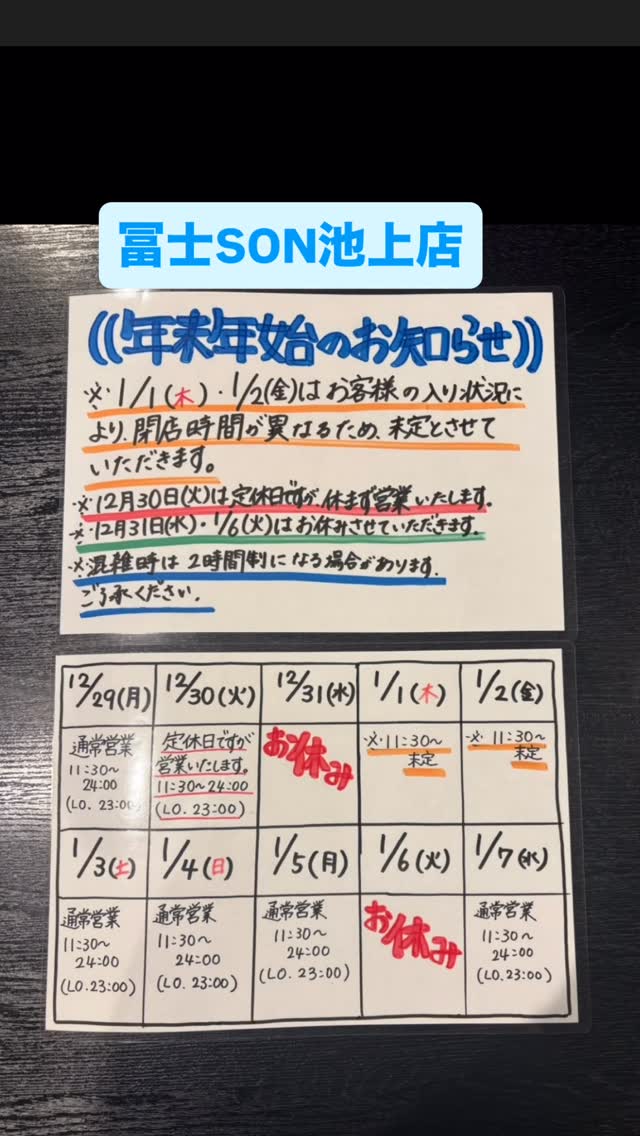 冨士SON池上店
((年末年始のお知らせ))
※1/1(木)・1/2(金)はお客様の入り状況に
より、閉店時間が異なるため、未定とさせて
いただきます。
※12月30日(火)は定休日ですが、休まず営業いたします。
※12月31日(水)・1/6(火)はお休みさせていただきます。
※混雑時は2時間制になる場合があります。
ご了承ください。
12/29(月) 12/30(火) 12/31(水) 1/1(木) 1/2(金)
通常営業
11:30〜
24:00
(LO.23:00)
定休日ですが
営業いたします。
11:30〜24:00
(LO.23:00)
お休み
※11:30〜
未定
※11:30〜
未定
1/3(土) 1/4(日) 1/5(月) 1/6(火) 1/7(水)
通常営業
11:30〜
24:00
(LO.23:00)
通常営業
11:30〜
24:00
(LO.23:00)
通常営業
11:30〜
24:00
(LO.23:00)
お休み
通常営業
11:30〜
24:00
(LO.23:00)